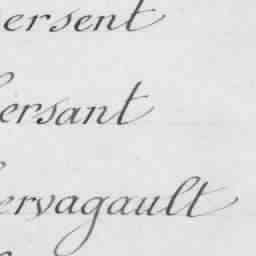 ersent
ersant
ervagault